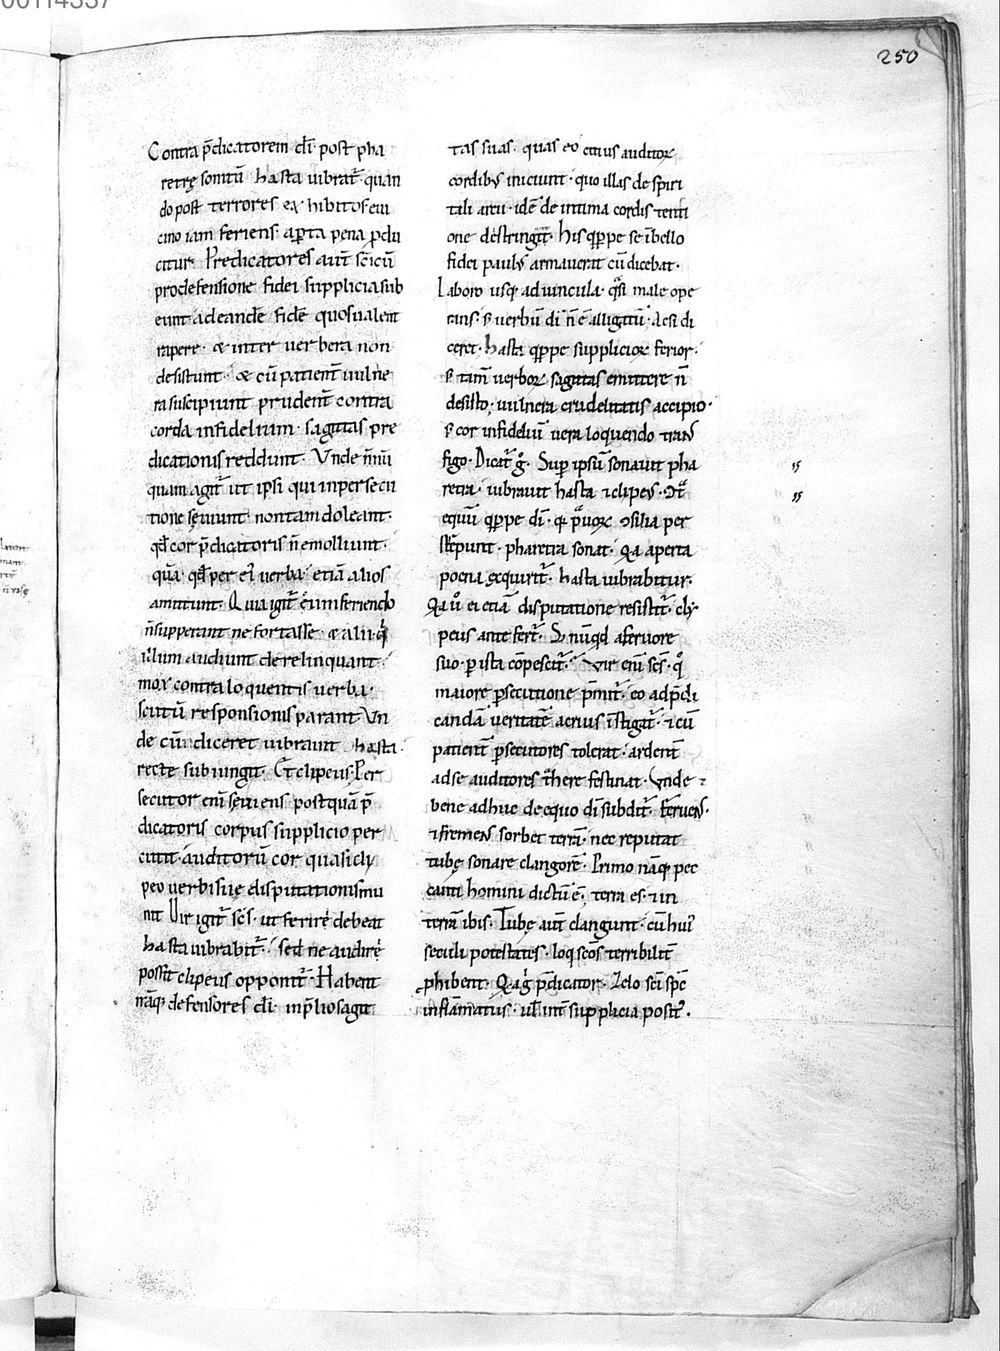 250
Contra p̄dicatorem di̅ post pha
retrę sonitū hasta uibrat̄· quan
do post terrores exhibitos eui
cino iam feriens aperta pena ꝓdu
citur· Predicatores aut̄ sc̄i cū
pro defensione fidei supplicia sub
eunt ad eandē fidē quos ualent
rapere· & inter uerbera non
desistunt· & cū patient̄ uulne
ra suscipiunt prudent̄ contra
corda infidelium· sagittas pre
dicationis reddunt· Unde n̄nū
quam agit̄ ut ipsi qui in persecu
tione sęuiunt· non tam doleant·
qd̄ cor p̄dicatoris n̄ emolliunt·
quā· qd̄ per ei᷒ uerba· etiā alios
amittunt· Quia igit̄ eum feriendo
n̄ superant ne fortasse & alii q̓
illum audiunt derelinquant·
mox contra loquentis uerba·
scutū responsionis parant Un
de cum diceret uibrauit hasta·
recte subiungit· Et clipeus· Per
secutor eni̅ sęuiens postquā p̄
dicatoris corpus supplicio per
cutit· auditorū cor quasi cly
peo uerbis suę disputationis mu
nit Uir igit̄ sc̄s· ut ferire debeat
hasta uibrabit̄· sed ne audire
possit clipeus opponit̄· Habent
nāq; defensores di̅· in p̄lio sagit
tas suas· quas eo citius auditoꝝ
cordib; iniciunt· quo illas de spiri
tali arcu· idē de intima cordis tenti
one destringit̄· His qꝑpe se ī bello
fidei paul᷒ armauerat cū dicebat·
Laboro usq; ad uincula· q̄si male ope
rans· s; uerbū di̅ n̄ ē alligatū· Ac si di
ceret· Hasta qꝑpe supplicioꝝ ferior·
s; tam̄ uerboꝝ sagittas emittere n̄
desisto; uulnera crudelitatis accipio·
s; cor infideliū uera loquendo trans
figo· Dicat̄ g̊· Sup̲ ipsū sonauit pha
retra· uibrauit hasta ⁊ clipeus· Ↄtͣ
equū qꝑpe di̅· q; p̄uoꝝ ↄsilia per
strepunt· pharetra sonat· Qa aperta
poena exquirit̄· hasta uibrabitur·
Qa u̅ ei etiā disputatione resistit̄· cly
peus ante fert̄· S; nūqd a feruore
suo· ꝑ ista cōpescit̄· Uir eni̅ sc̄s· q̊
maiore ꝑsecutione p̄mit̄· eo ad p̄di
candā ueritatē acrius īstigat̄· ⁊ cū
patient̄ ꝑsecutores tolerat· ardent̄
ad se auditores t̄here festinat· Unde ⁊
bene adhuc de equo di̅ subdit̄· Feruens·
⁊ fremens sorbet terrā· nec reputat
tubę sonare clangorē· Primo nāq; pec
canti homini dictū ē; terra es· ⁊ in
terrā ibis· Tubę aut̄ clangunt· cū hui᷒
seculi potestates· loqi sc̄os terribilit̄
ꝓhibent· Qa g̊ p̄dicator· Zelo sc̄i sp̄c
inflāmatus· ul̄ int̄ supplicia posit᷒·